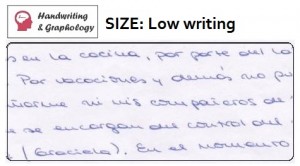 Handwriting
& Graphology
SIZE: Low writing
en la cocina, por parte del
Por vacaciones y demás no
ni mis compañeros de
se encargan del control del
(Graciela). En el momento